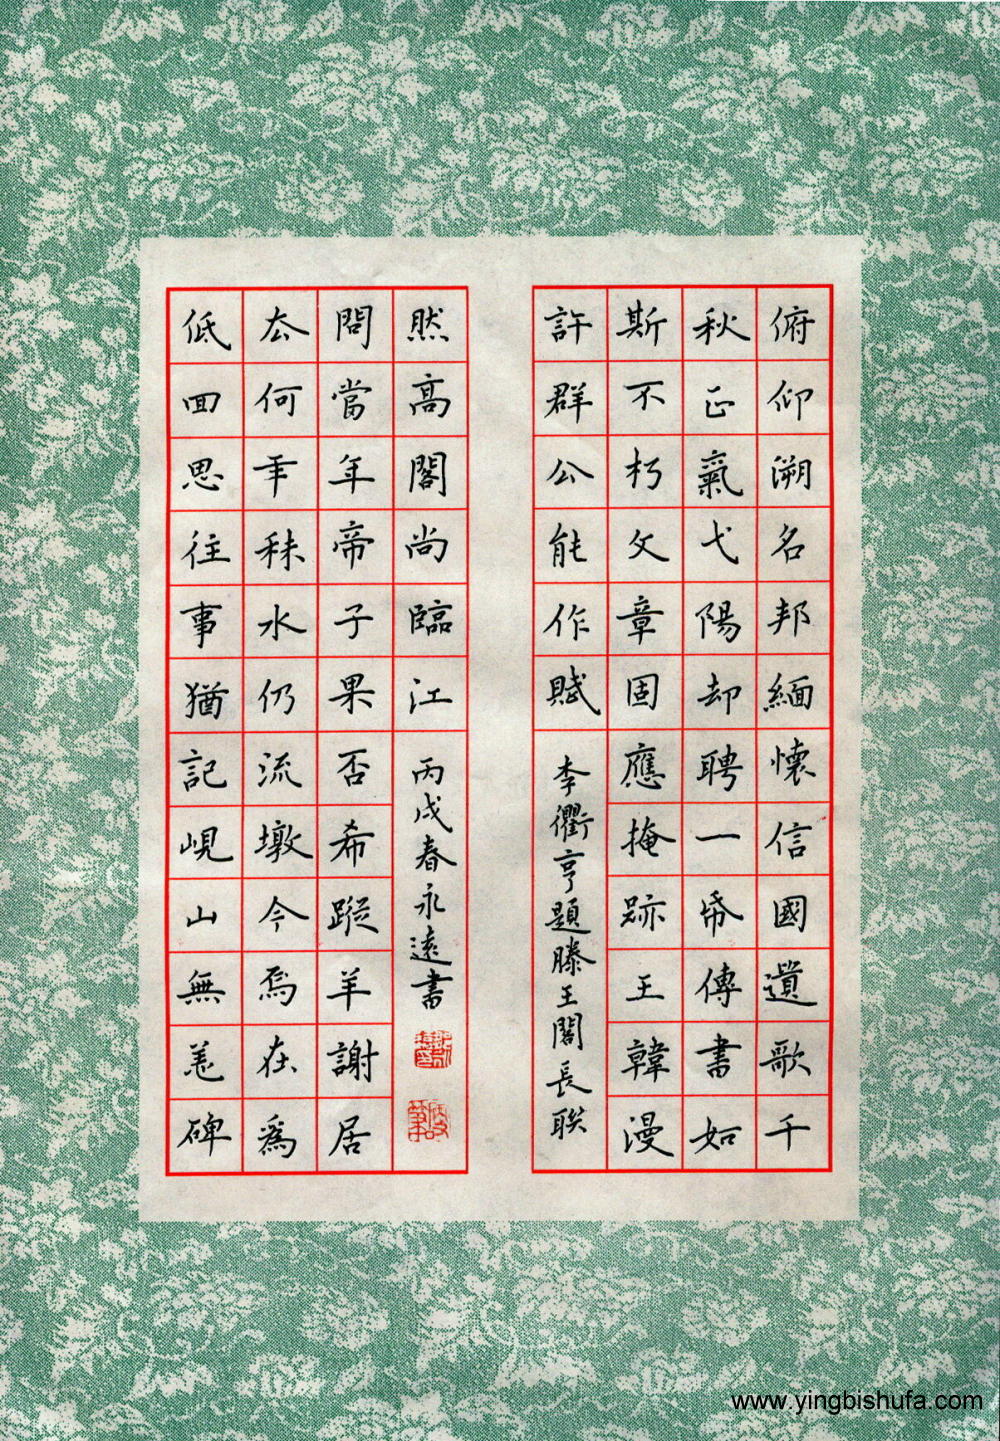 俯仰溯名邦緬懷信國遺歌千
秋正氣弋陽却聘一帋傳書如
斯不朽文章固應掩跡王韓漫
許群公能作賦
李衢亨題滕王閣長聯
低回思往事猶記峴山無恙碑
厺何年秣水仍流墩今焉在為
問當年帝子果否希蹤羊謝居
然高閣尚臨江
丙戌春永遠書
www.yingbishufa.com